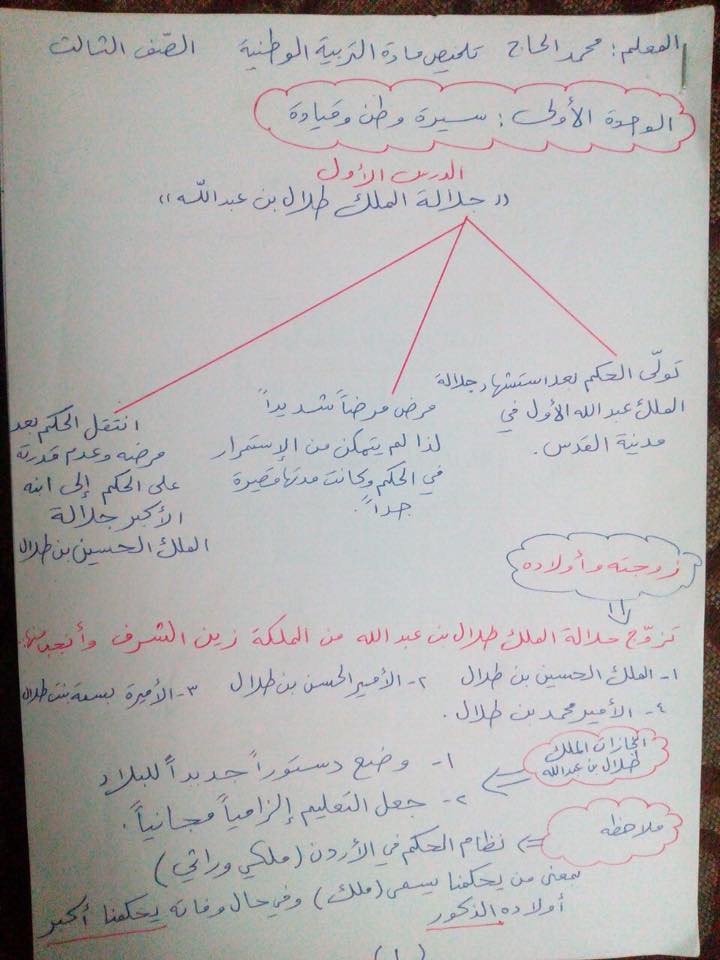 المعلم: محمد الحاج تلخيص مادة التربية الوطنية الصّف الثالث
الوحدة الأولى: سيرة وطن وقيادة
الدرس الأول
"جلالة الملك طلال بن عبدالله"
تولّى الحكم بعد استشهاد جلالة
الملك عبد الله الأول في
مدينة القدس.
مرض مرضاً شديداً
لذا لم يتمكن من الإستمرار
في الحكم وكانت مدتها قصيرة
جداً.
انتقل الحكم بعد
مرضه وعدم قدرته
على الحكم إلى ابنه
الأكبر جلالة
الملك الحسين بن طلال
زوجته وأولاده
تزوّج جلالة الملك طلال بن عبد الله من الملكة زين الشرف وأنجب منها:
١- الملك الحسين بن طلال ٢- الأمير الحسن بن طلال ٣- الأميرة بسمة بنت طلال
٤- الأمير محمد بن طلال.
انجازات الملك
طلال بن عبدالله
١- وضع دستوراً جديداً للبلاد
٢- جعل التعليم إلزامياً مجانياً.
ملاحظه
نظام الحكم في الأردن (ملكي وراثي)
بمعنى من يحكمنا يسمى (ملك) وفي حال وفاته يحكمنا أكبر
أولاده الذكور
(١)